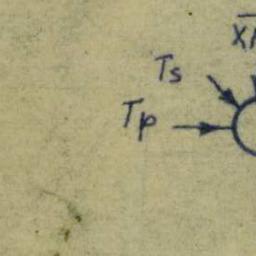 Ts
Tp